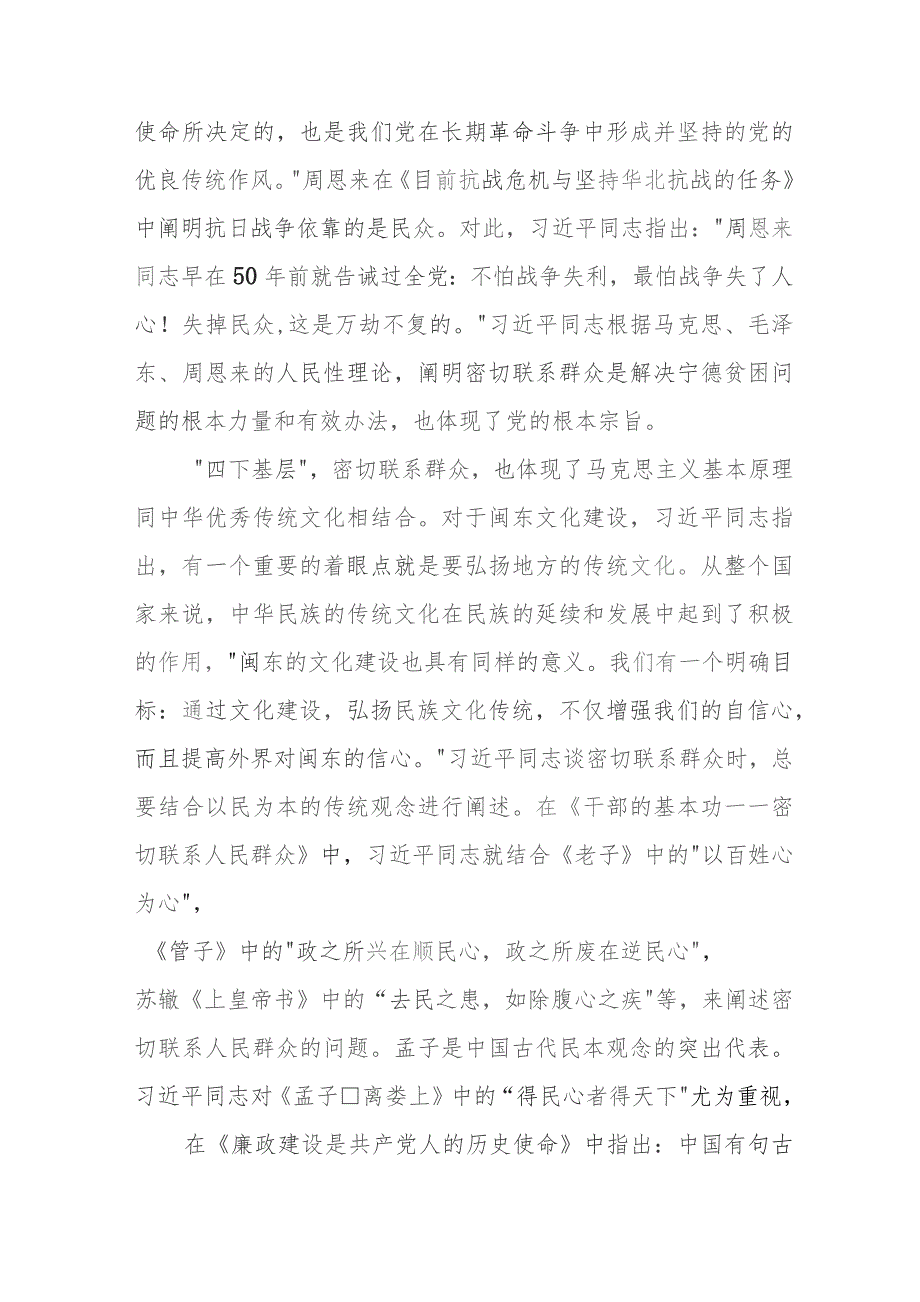 使命所决定的，也是我们党在长期革命斗争中形成并坚持的党的
优良传统作风。"周恩来在《目前抗战危机与坚持华北抗战的任务》
中阐明抗日战争依靠的是民众。对此，习近平同志指出："周恩来
同志早在 50 年前就告诫过全党：不怕战争失利，最怕战争失了人
心！失掉民众,这是万劫不复的。"习近平同志根据马克思、毛泽
东、周恩来的人民性理论，阐明密切联系群众是解决宁德贫困问
题的根本力量和有效办法，也体现了党的根本宗旨。
"四下基层"，密切联系群众，也体现了马克思主义基本原理
同中华优秀传统文化相结合。对于闽东文化建设，习近平同志指
出，有一个重要的着眼点就是要弘扬地方的传统文化。从整个国
家来说，中华民族的传统文化在民族的延续和发展中起到了积极
的作用，"闽东的文化建设也具有同样的意义。我们有一个明确目
标：通过文化建设，弘扬民族文化传统，不仅增强我们的自信心，
而且提高外界对闽东的信心。"习近平同志谈密切联系群众时，总
要结合以民为本的传统观念进行阐述。在《干部的基本功一一密
切联系人民群众》中，习近平同志就结合《老子》中的"以百姓心
为心"，
《管子》中的"政之所兴在顺民心，政之所废在逆民心"，
苏辙《上皇帝书》中的“去民之患，如除腹心之疾"等，来阐述密
切联系人民群众的问题。孟子是中国古代民本观念的突出代表。
习近平同志对《孟子□离娄上》中的“得民心者得天下"尤为重视，
在《廉政建设是共产党人的历史使命》中指出：中国有句古